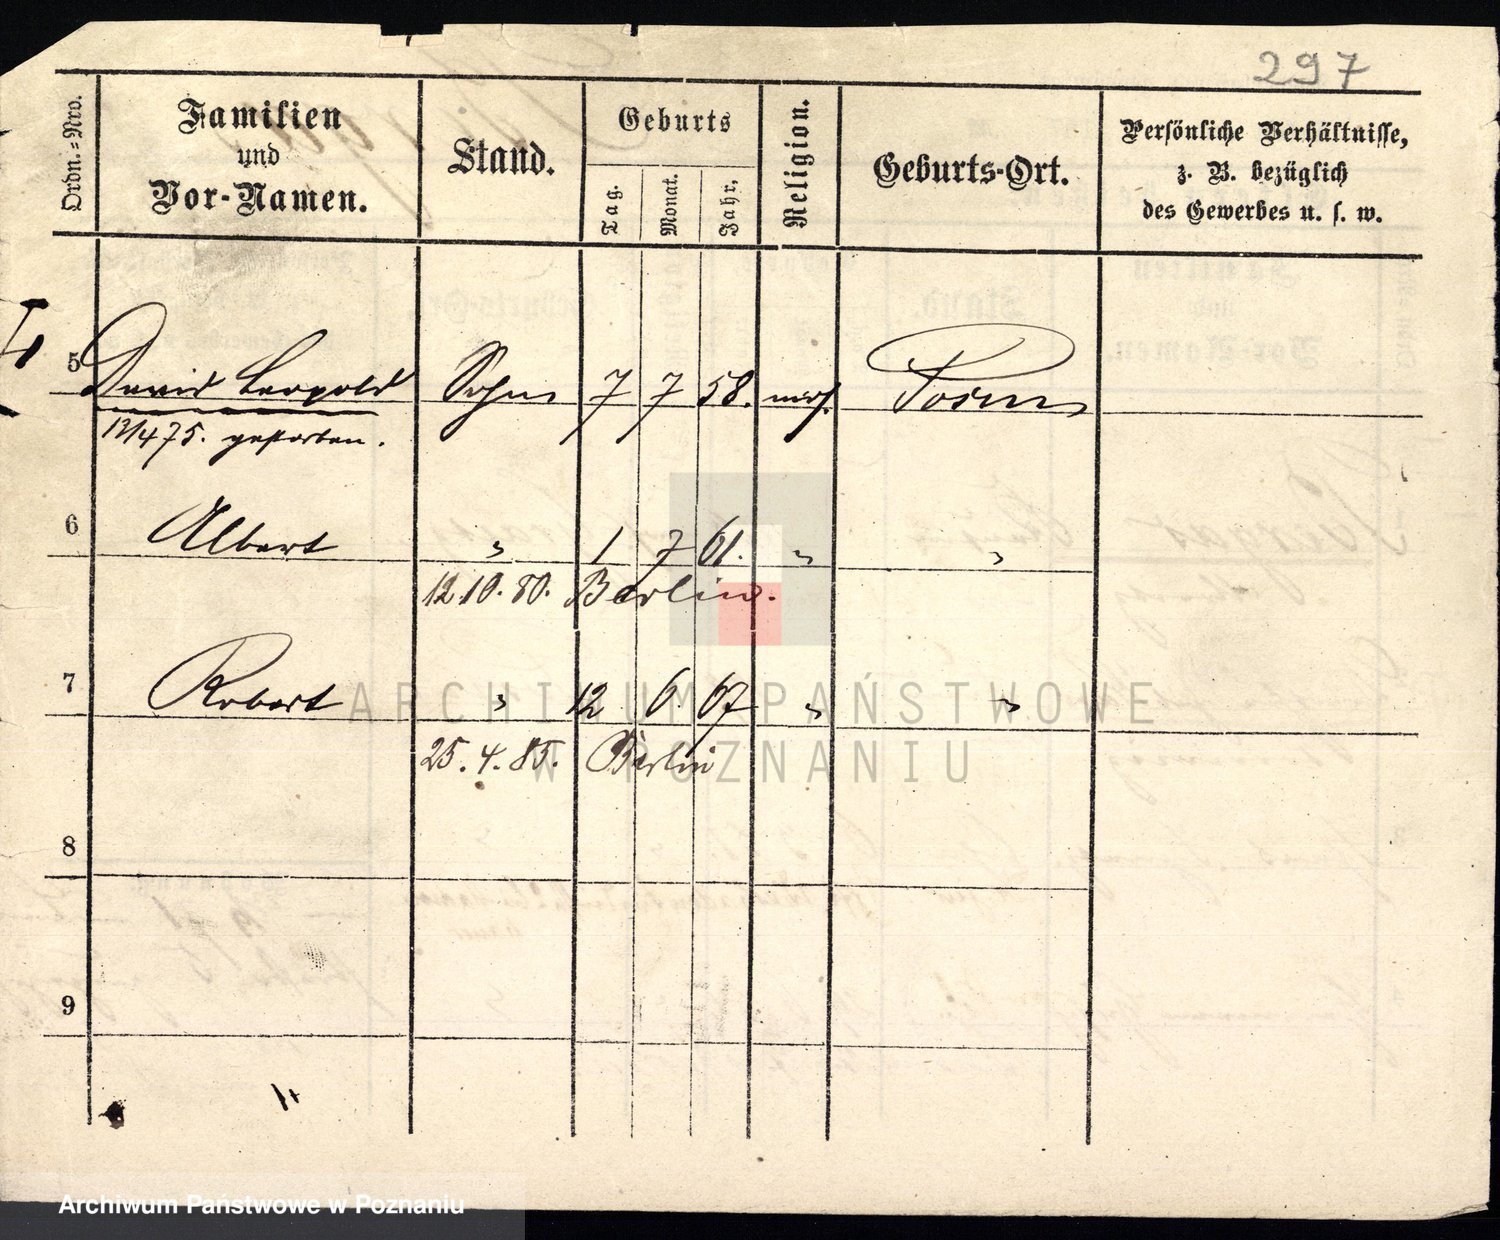 297
Ordn.-Nro.
Familien
und
Vor-Namen.
Stand.
Geburts
Tag.
Monat.
Jahr,
Religion.
Geburts-Ort.
Persönliche Verhältnisse,
z. B. bezüglich
des Gewerbes u. s. w.
5 David Leopold Sohn 7 7 58. mos. Posen
13/4 75. gestorben.
6 Albert " 1 7 61. " "
12 10. 80. Berlin.
7 Robert " 12 6. 67 " "
25. 4. 85. Berlin
8
9
ARCHIWUM PAŃSTWOWE
W POZNANIU
Archiwum Państwowe w Poznaniu